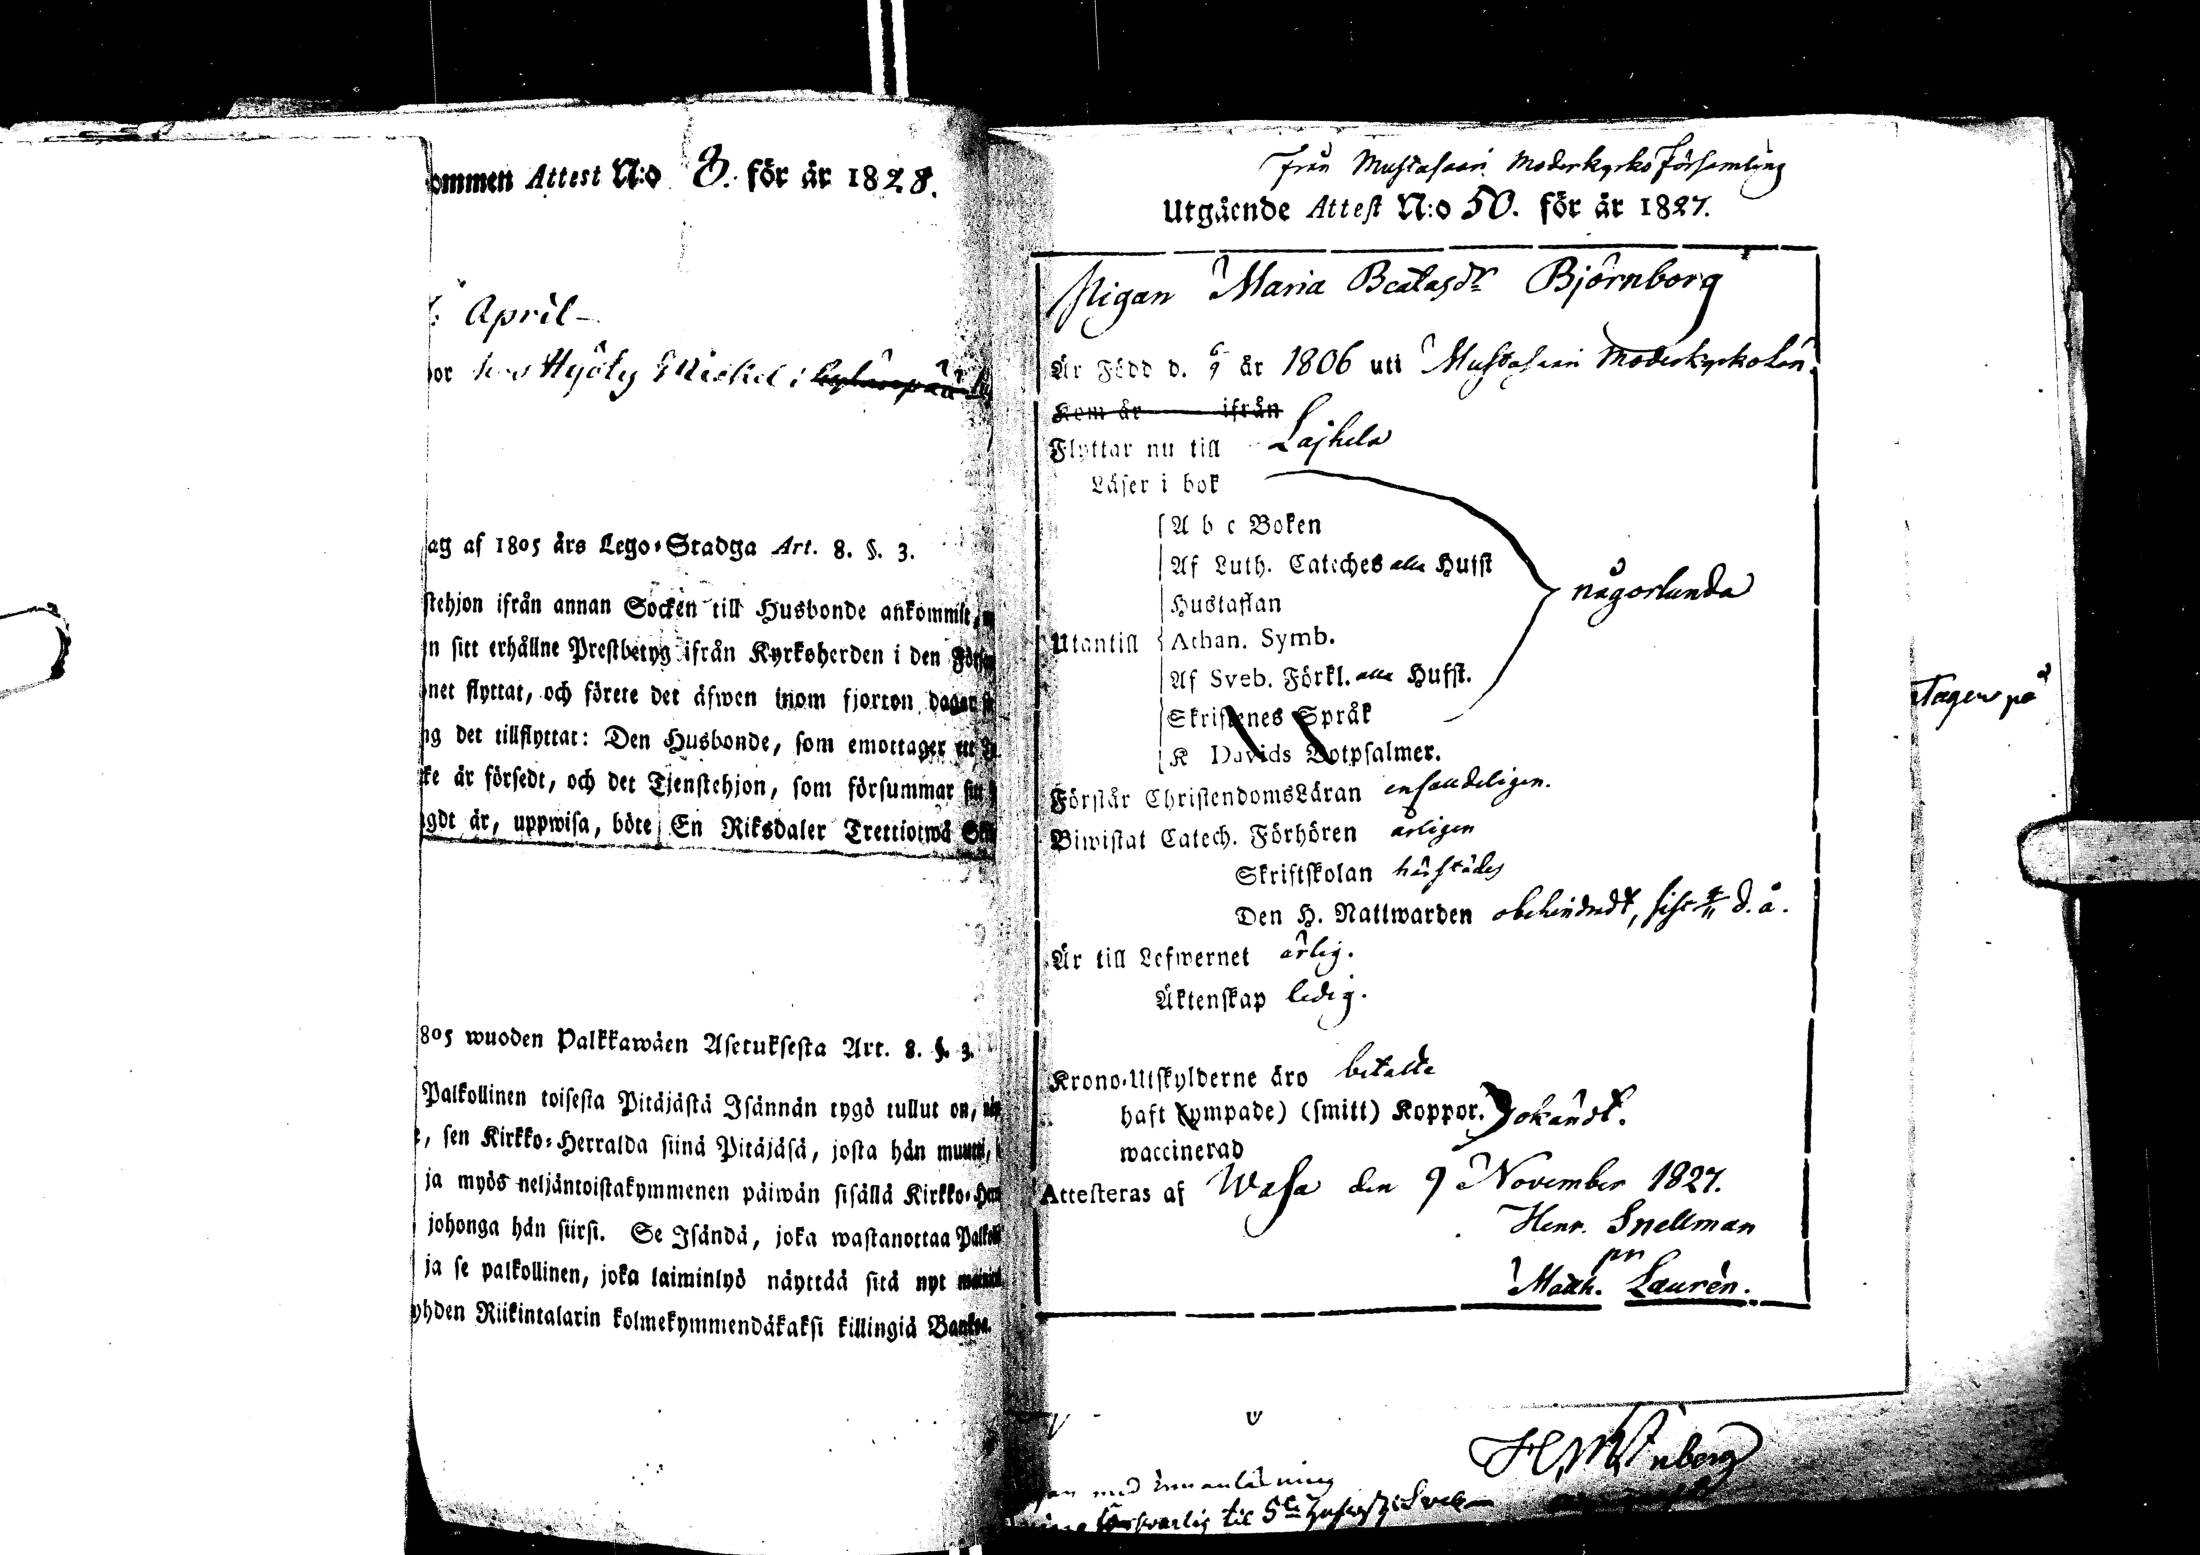 ommen Attest N:o 8. för år 1828.
April
or hos Hyöty Michel i
ag af 1805 års Lego-Stadga Art. 8. §. 3.
stehjon ifrån annan Socken till Husbonde ankommit,
n sitt erhållne Prestbetyg ifrån Kyrkoherden i den
net flyttat, och förete det äfwen inom fjorton dagar
ng det tillflyttat: Den Husbonde, som emottager ett
ke är försedt, och det Tjenstehjon, som försummar sitt
gdt är, uppwisa, böte En Riksdaler Trettiotwå
805 wuoden Palkkawäen Asetuksesta Art. 8. §. 3.
Palkollinen toisesta Pitäjästä Isännän tygö tullut on,
, sen Kirkko-Herralda siinä Pitäjäsä, josta hän muutti,
ja myös neljäntoistakymmenen päiwän sisällä Kirkko-
johonga hän siirsi. Se Isändä, joka wastanottaa
ja se palkollinen, joka laiminlyö näyttää sitä nyt
yhden Riikintalarin kolmekymmendäkaksi killingiä Banko.
från Mustasaari Moderkyrko Församling
Utgående Attest N:o 50. för år 1827.
Pigan Maria Beatasdr Björnborg
Är Född d. 6/9 år 1806 uti Mustasaari Moderkyrko
Kom år ifrån
Flyttar nu till Lajhela
Läser i bok
A b c Boken
Af Luth. Cateches alla Hufst
Hustaflan
någorlunda
Utantill Athan. Symb.
Af Sveb. Förkl. alla Hufst.
Skriftenes Språk
K Davids Botpsalmer.
Förstår ChristendomsLäran enfaldeligen.
Biwistat Catech. Förhören årligen
Skriftskolan härstädes
Den H. Nattwarden obehindradt, sist 4/11 d. å.
Är till Lefwernet ärlig.
Äktenskap ledig.
Krono-Utskylderne äro betalte
haft (ympade) (smitt) Koppor. okändt.
waccinerad
Attesteras af Wasa den 9 November 1827.
Henr. Snellman
pr
Math. Laurén.
Tages på
med innanläsning
försvarlig til 5te